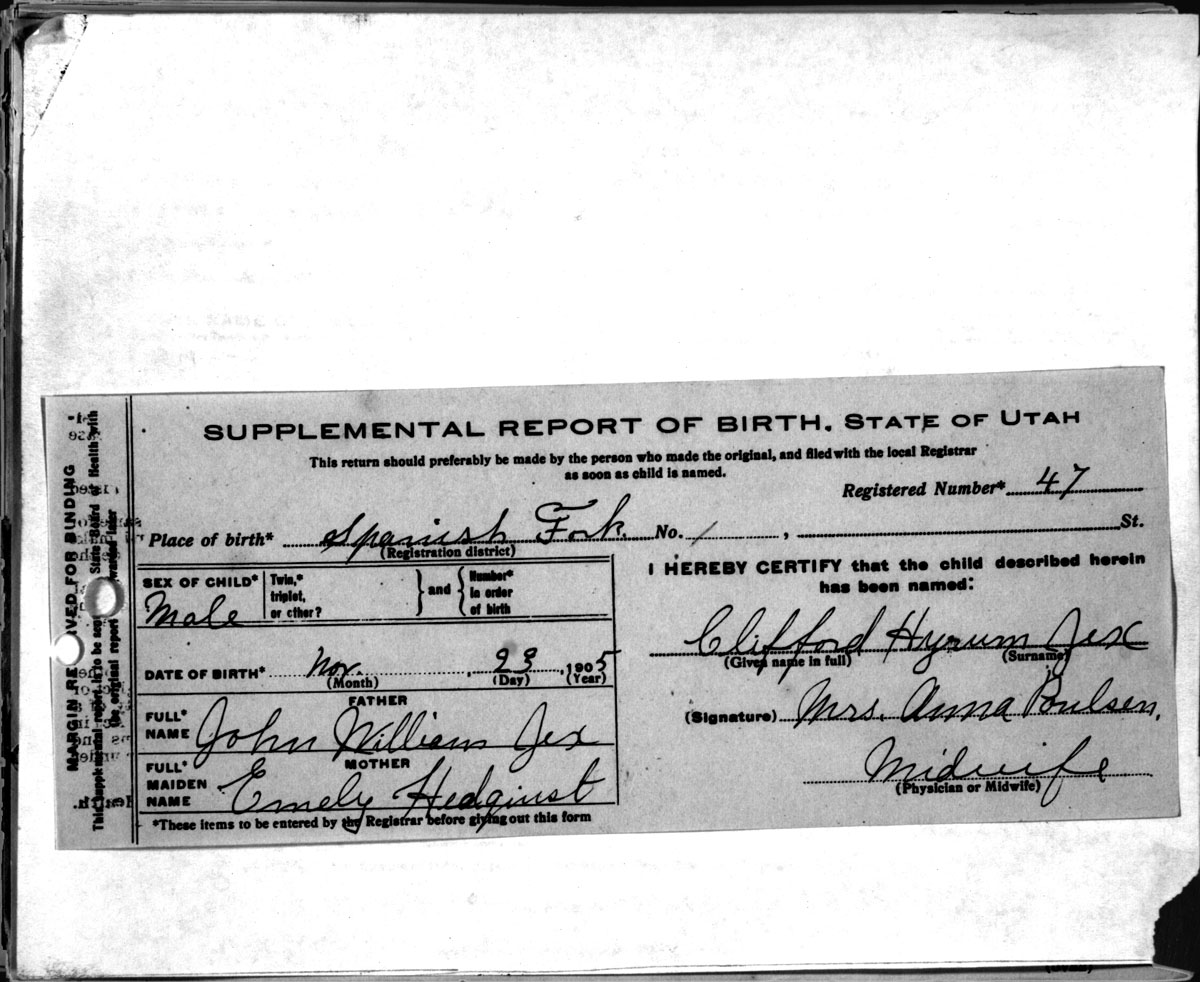 SUPPLEMENTAL REPORT OF BIRTH. STATE OF UTAH
This return should preferably be made by the person who made the original, and filed with the local Registrar
as soon as child is named.
Registered Number* 47
Place of birth* Spanish Fork No. / , St.
(Registration district)
SEX OF CHILD* Male
Twin,* triplet, or other? } and { Number* in order of birth
DATE OF BIRTH* Nov. , 23 , 1905
(Month) (Day) (Year)
FATHER
FULL* NAME John William Jex
MOTHER
FULL* MAIDEN NAME Emely Hedquist
*These items to be entered by the Registrar before giving out this form
I HEREBY CERTIFY that the child described herein
has been named:
Clifford Hyrum Jex
(Given name in full) (Surname)
(Signature) Mrs. Anna Poulsen,
Midwife
(Physician or Midwife)
MARGIN RE VED FOR BINDING
This supplemental report is to be State Board of Health with
the original report warded later